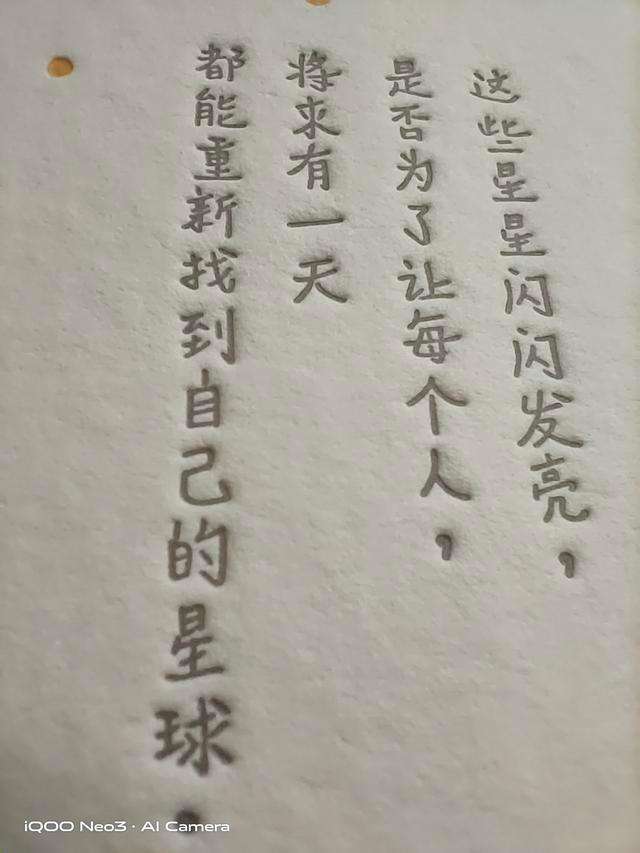 这些星星闪闪发亮，
是否为了让每个人，
将来有一天
都能重新找到自己的星球.
iQOO Neo3 · AI Camera